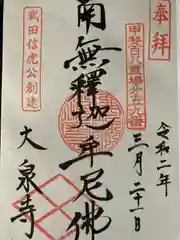 奉拝
甲斐百八霊場第五十九番
令和二年
三月二十一日
南無釋迦牟尼佛
武田信虎公創建
大泉寺